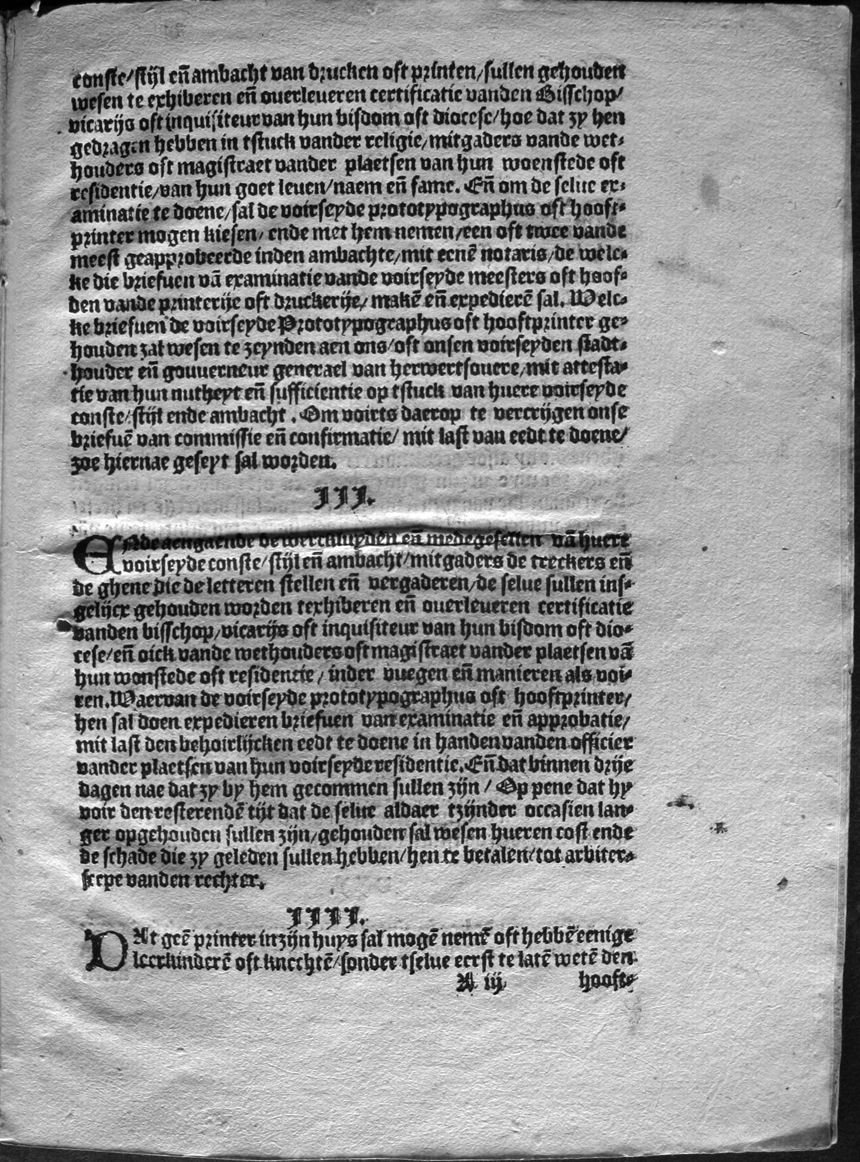 conste/stijl en̄ ambacht van drucken oft printen/sullen gehouden
wesen te exhiberen en̄ ouerleueren certificatie vanden Bisschop/
vicarijs oft inquisiteur van hun bisdom oft diocese/hoe dat zy hen
gedragen hebben in tstuck vander religie/mitgaders vande wet⸗
houders oft magistraet vander plaetsen van hun woenstede oft
residentie/van hun goet leuen/naem en̄ fame. En̄ om de selue ex⸗
aminatie te doene/sal de voirseyde prototypographus oft hooft⸗
printer mogen kiesen/ ende met hem nemen/een oft twee vande
meest geapprobeerde inden ambachte/mit eenē notaris/de welc⸗
ke die briefuen vā examinatie vande voirseyde meesters oft hoof⸗
den vande printerije oft druckerije/ makē en̄ expedierē sal. Welc⸗
ke briefuen de voirseyde Prototypographus oft hooftprinter ge⸗
houden zal wesen te zeynden aen ons/oft onsen voirseyden stadt⸗
houder en̄ gouuerneur generael van herwertsouere/mit attesta⸗
tie van hun nutheyt en̄ sufficientie op tstuck van huere voirseyde
conste/stijl ende ambacht . Om voirts daerop te vercrijgen onse
briefuē van commissie en̄ confirmatie/ mit last van eedt te doene/
zoe hiernae geseyt sal worden.
III.
ENde aengaende de wercklluyden en̄ medegesellen vā huere
voirseyde conste/stijl en̄ ambacht/mitgaders de treckers en̄
de ghene die de letteren stellen en̄ vergaderen/de selue sullen ins⸗
gelijcx gehouden worden texhiberen en̄ ouerleueren certificatie
vanden bisschop/vicarijs oft inquisiteur van hun bisdom oft dio⸗
cese/en̄ oick vande wethouders oft magistraet vander plaetsen vā
hun wonstede oft residentie/ inder vuegen en̄ manieren als voi⸗
ren. Waervan de voirseyde prototypographus oft hooftprinter/
hen sal doen expedieren briefuen van examinatie en̄ approbatie/
mit last den behoirlijcken eedt te doene in handen vanden officier
vander plaetsen van hun voirseyde residentie. En̄ dat binnen drije
dagen nae dat zy by hem gecommen sullen zijn/ Op pene dat hy
voir den resterendē tijt dat de selue aldaer tzijnder occasien lan⸗
ger opgehouden sullen zijn/gehouden sal wesen hueren cost ende
de schade die zy geleden sullen hebben/hen te betalen/tot arbiter⸗
scepe vanden rechter.
IIII.
DAt geē printer in zijn huys sal mogē nemē oft hebbē eenige
leerkinderē oft knechtē/sonder tselue eerst te latē wetē den
A iij hooft⸗